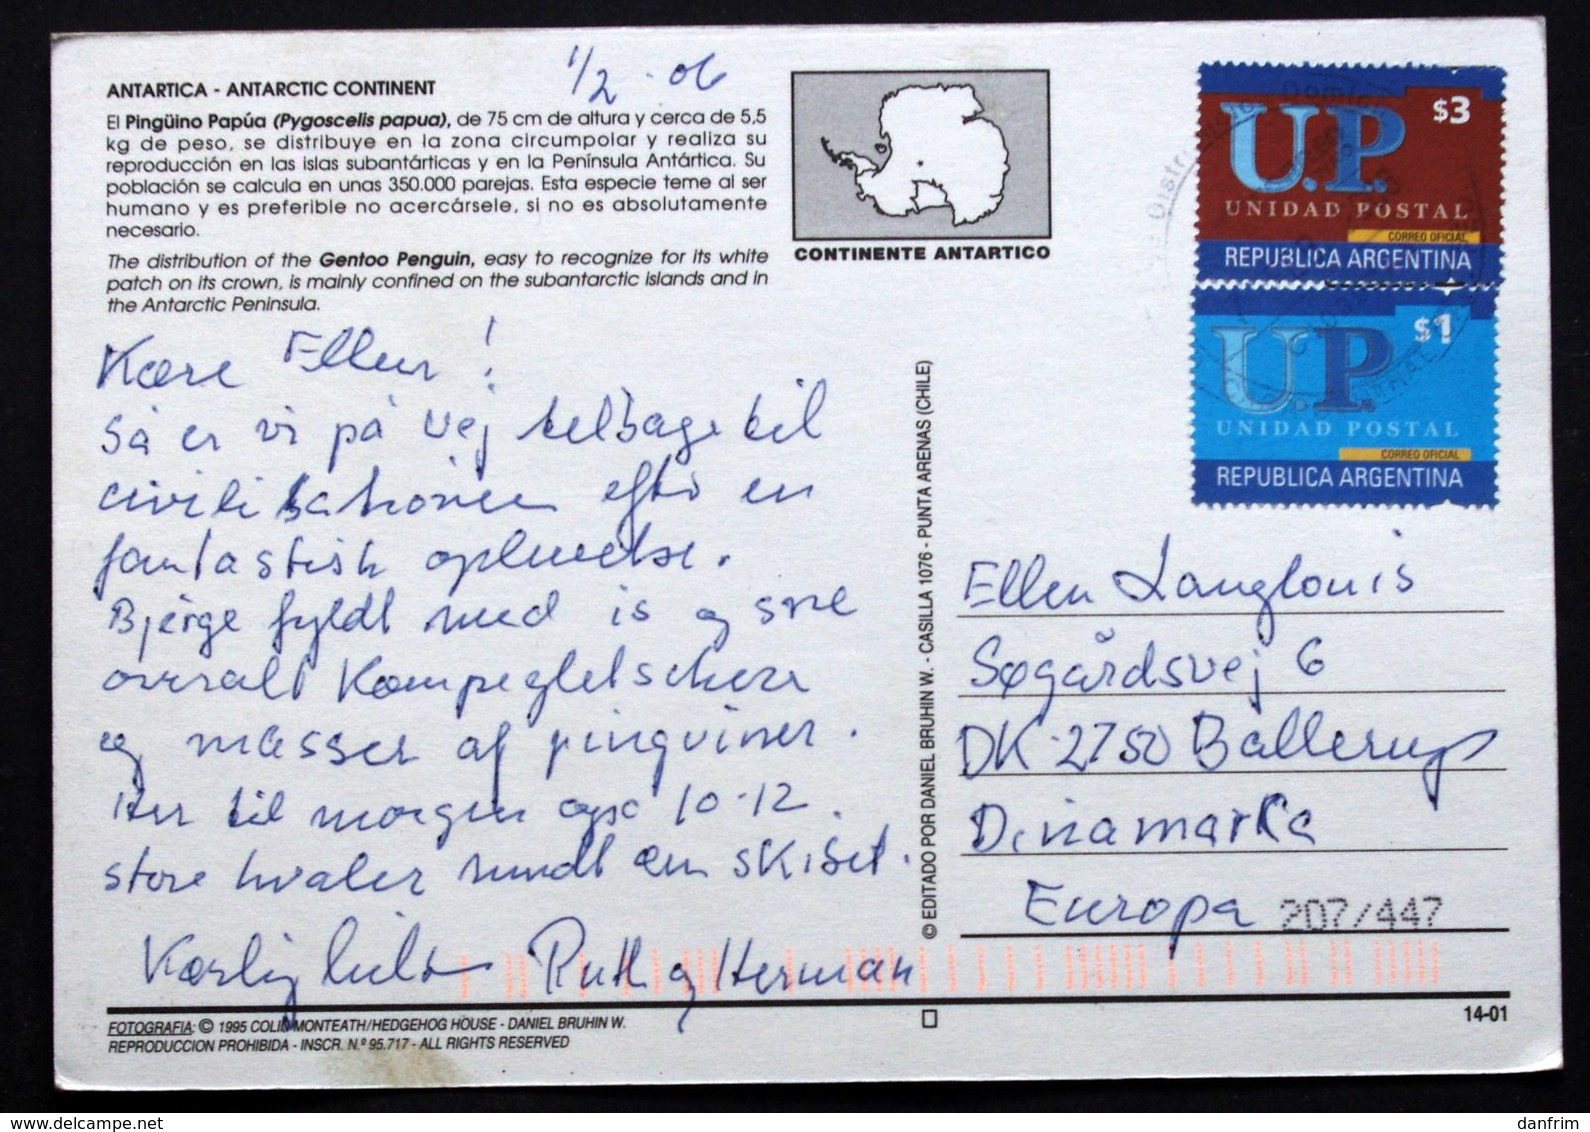 1/2 · 06
ANTARTICA - ANTARCTIC CONTINENT
El Pingüino Papúa (Pygoscelis papua), de 75 cm de altura y cerca de 5,5
kg de peso, se distribuye en la zona circumpolar y realiza su
reproducción en las islas subantárticas y en la Península Antártica. Su
población se calcula en unas 350.000 parejas. Esta especie teme al ser
humano y es preferible no acercársele, si no es absolutamente
necesario.
The distribution of the Gentoo Penguin, easy to recognize for its white
patch on its crown, is mainly confined on the subantarctic islands and in
the Antarctic Peninsula.
CONTINENTE ANTARTICO
U.P. $3
UNIDAD POSTAL
CORREO OFICIAL
REPUBLICA ARGENTINA
U.P. $1
UNIDAD POSTAL
CORREO OFICIAL
REPUBLICA ARGENTINA
Kære Ellen!
Så er vi på vej tilbage til
civilisationen efter en
fantastisk oplevelse.
Bjerge fyldt med is og sne
overalt Kæmpegletschere
og masser af pingviner.
Her til morgen også 10-12
store hvaler rundt om skibet.
Kærlig hilsen Ruth og Herman
© EDITADO POR DANIEL BRUHIN W. - CASILLA 1076 - PUNTA ARENAS (CHILE)
Ellen Langlouis
Søgårdsvej 6
DK-2750 Ballerup
Dinamarka
Europa 207/447
FOTOGRAFIA: © 1995 COLIN MONTEATH/HEDGEHOG HOUSE - DANIEL BRUHIN W.
REPRODUCCION PROHIBIDA - INSCR. N.º 95.717 - ALL RIGHTS RESERVED
14-01
www.delcampe.net
danfrim